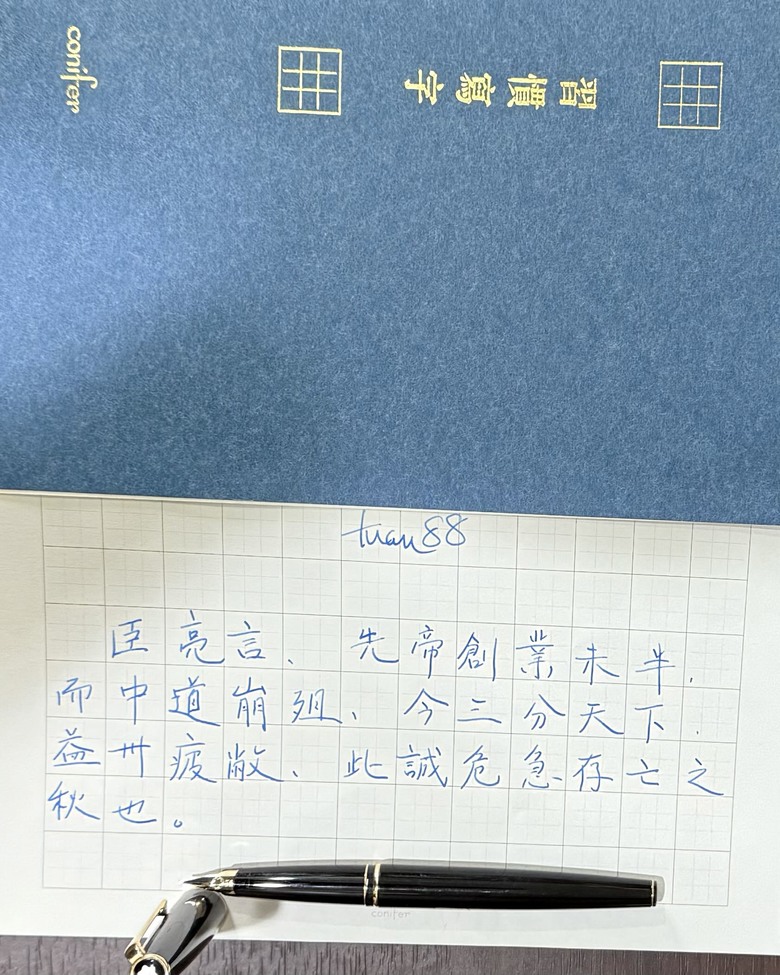 conifer
習慣寫字
tuan88
臣亮言、先帝創業未半、
而中道崩殂、今三分天下、
益州疲敝、此誠危急存亡之
秋也。
conifer